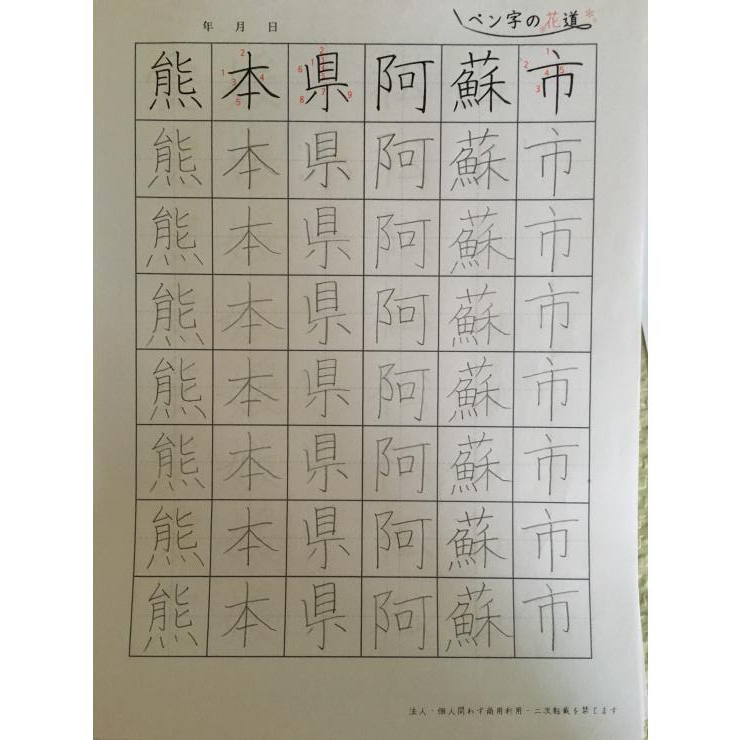 年 月 日
ペン字の花道
熊本県阿蘇市
熊本県阿蘇市
熊本県阿蘇市
熊本県阿蘇市
熊本県阿蘇市
熊本県阿蘇市
熊本県阿蘇市
熊本県阿蘇市
法人・個人問わず商用利用・二次転載を禁じます